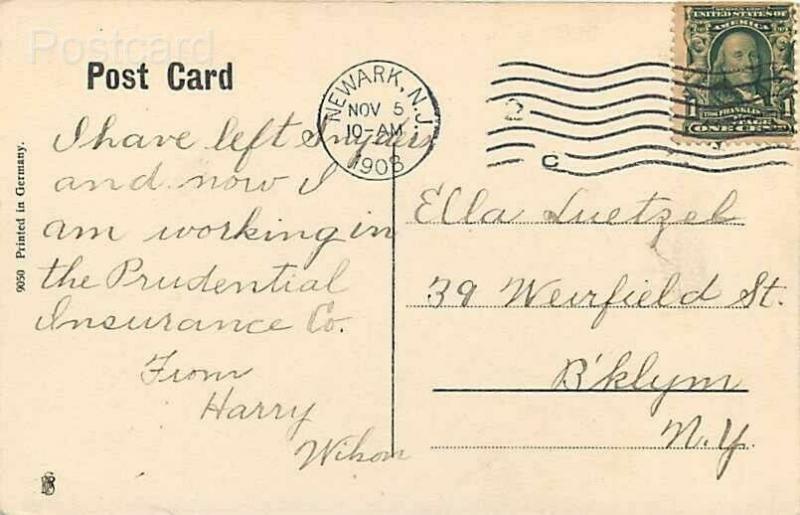 Postcard
Post Card
NEWARK, N.J.
NOV 5
10-AM
1908
2
C
UNITED STATES OF
AMERICA
1 1
FRANKLIN
ONE CENT
I have left Snyders
and now I
am working in
the Prudential
Insurance Co.
From
Harry
Wilson
Ella Luetzel
39 Weirfield St.
B'klym
N.Y.
9050 Printed in Germany.